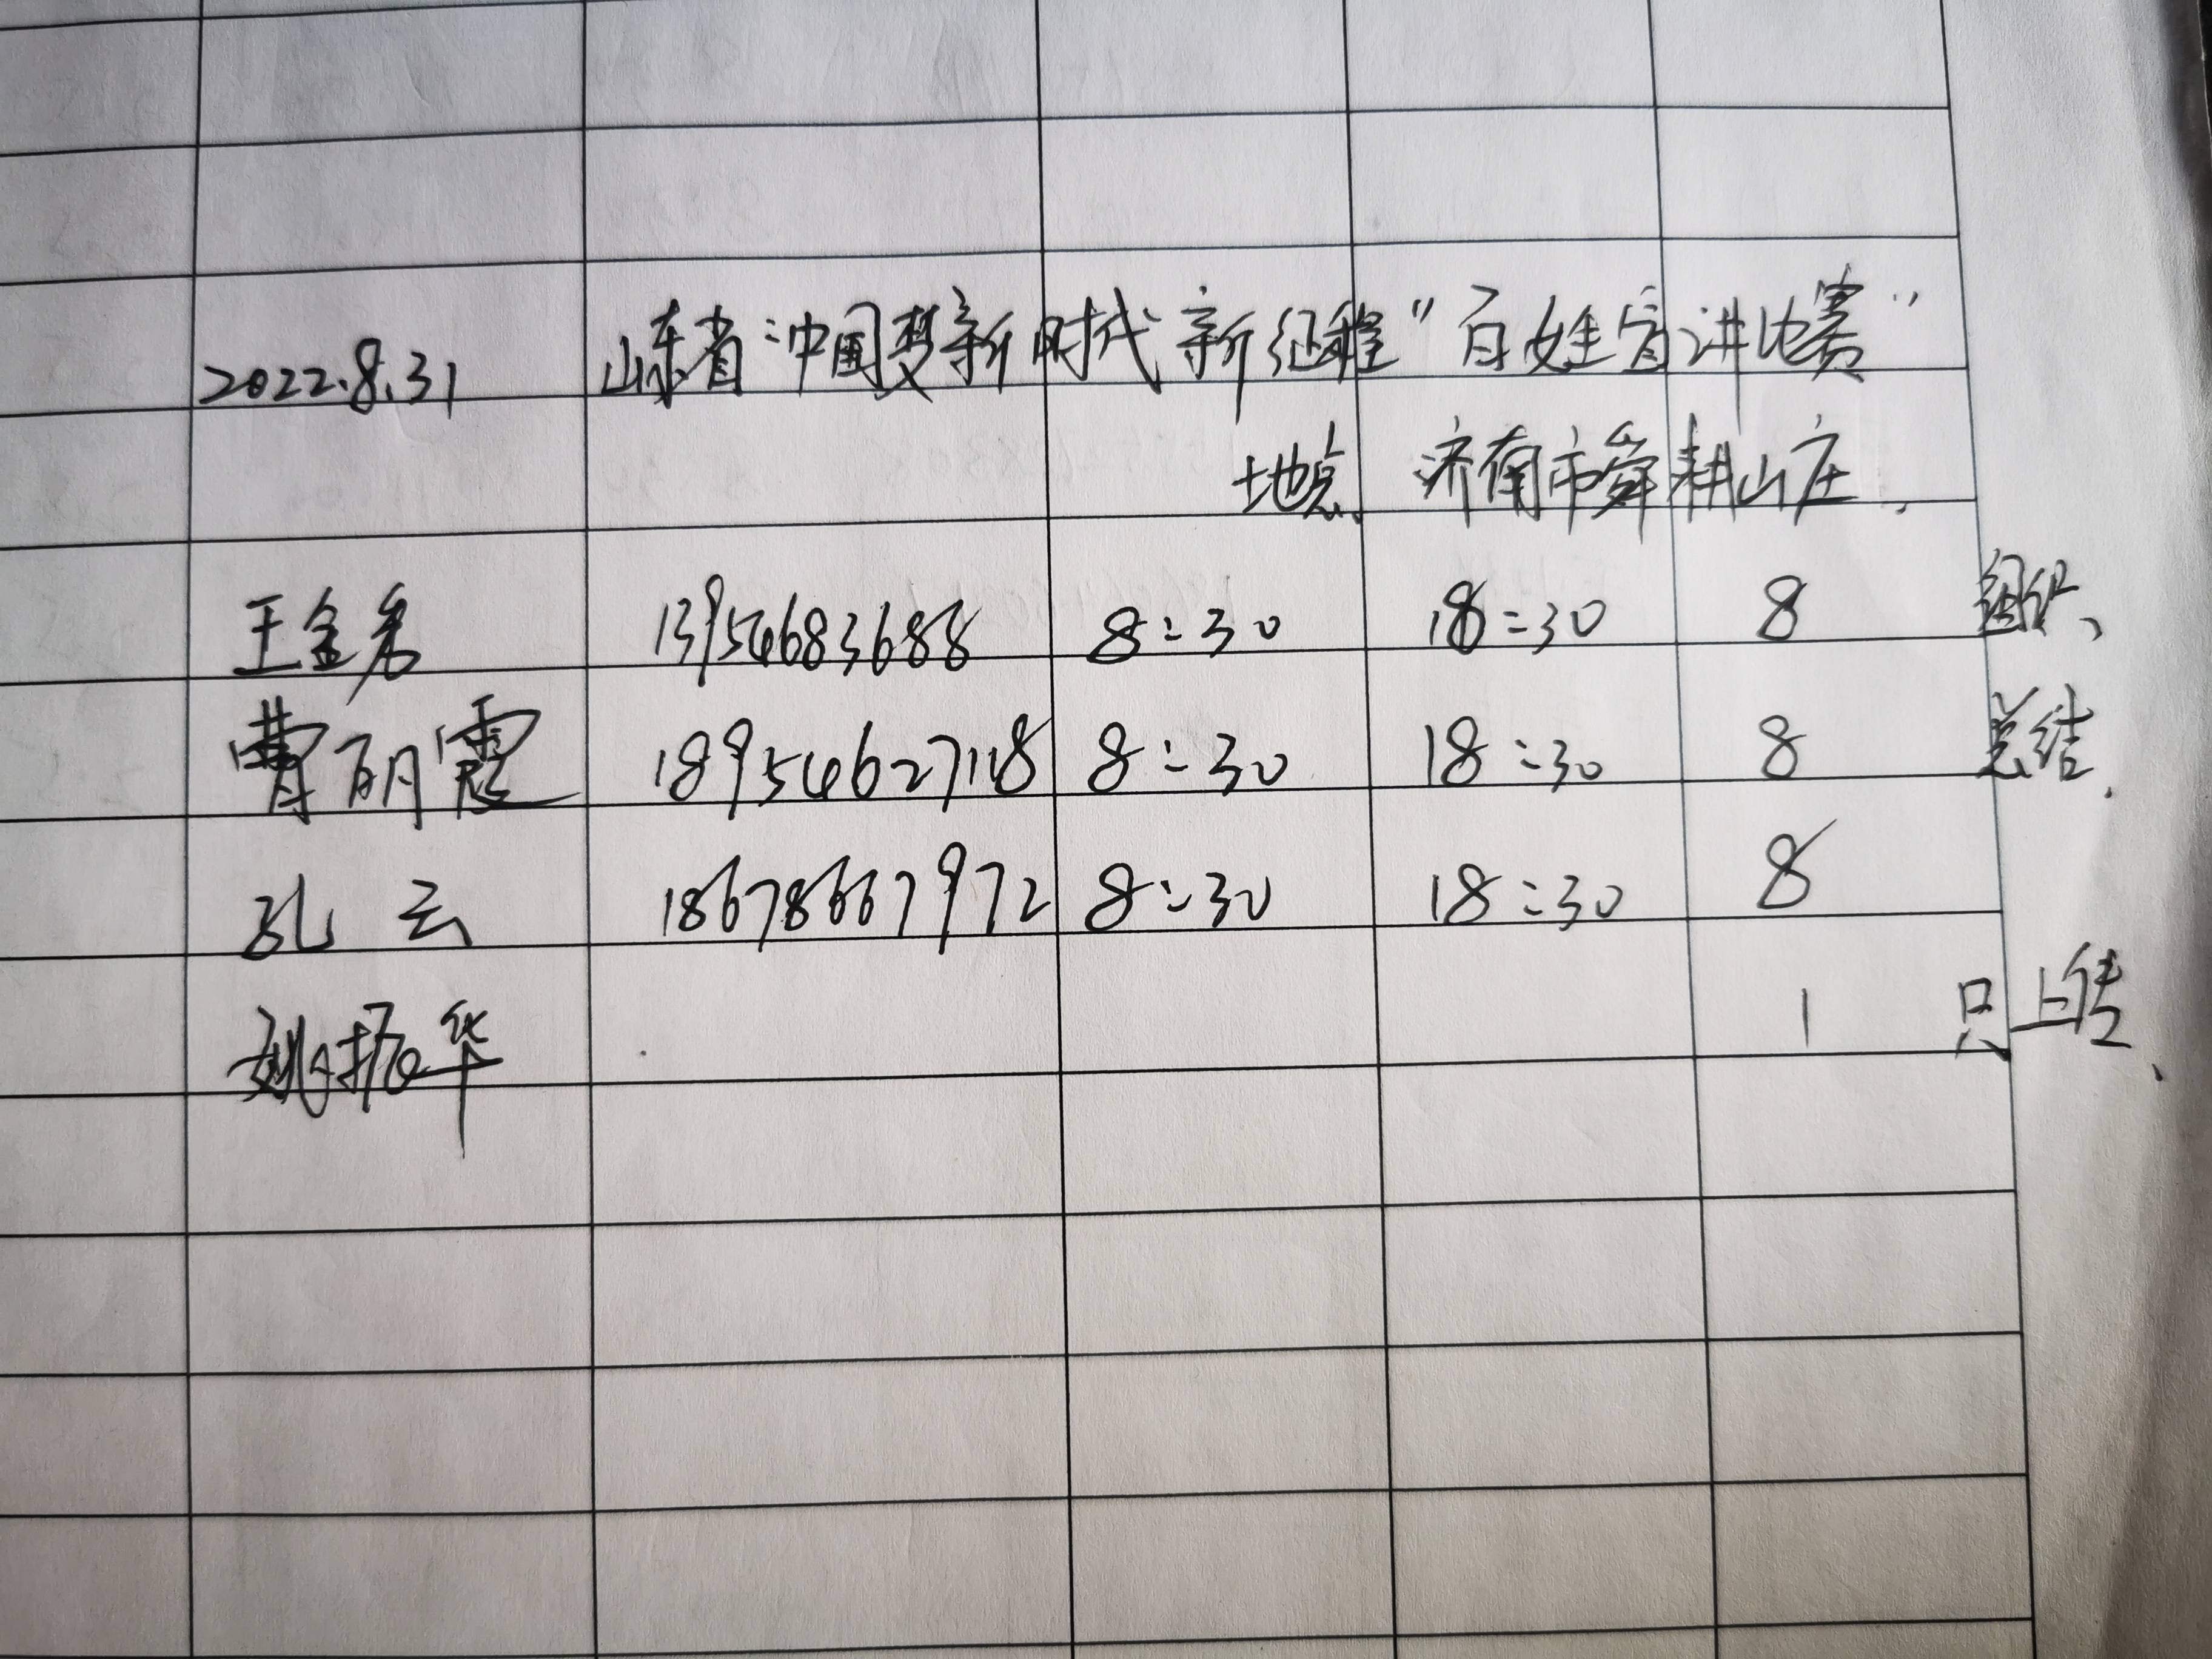 2022.8.31 山东省"中国梦新时代新征程"百姓宣讲比赛"
地点 济南市舜耕山庄.
王金 13954683688 8:30 18:30 8 组织、
曹丽霞 18954627118 8:30 18:30 8 总结.
孔云 18678667972 8:30 18:30 8
姚振华 1 只上传、